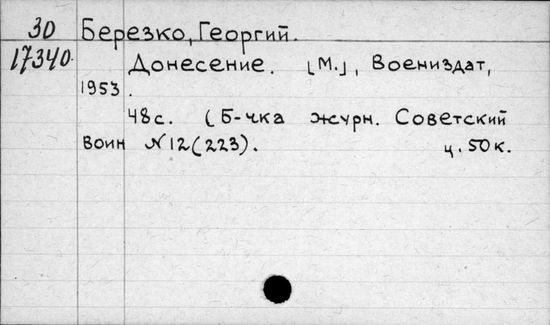 30 Березко, Георгий.
17340 Донесение. [М.], Воениздат,
1953.
48с. (Б-чка журн. Советский
воин № 12(223). ц. 50 к.